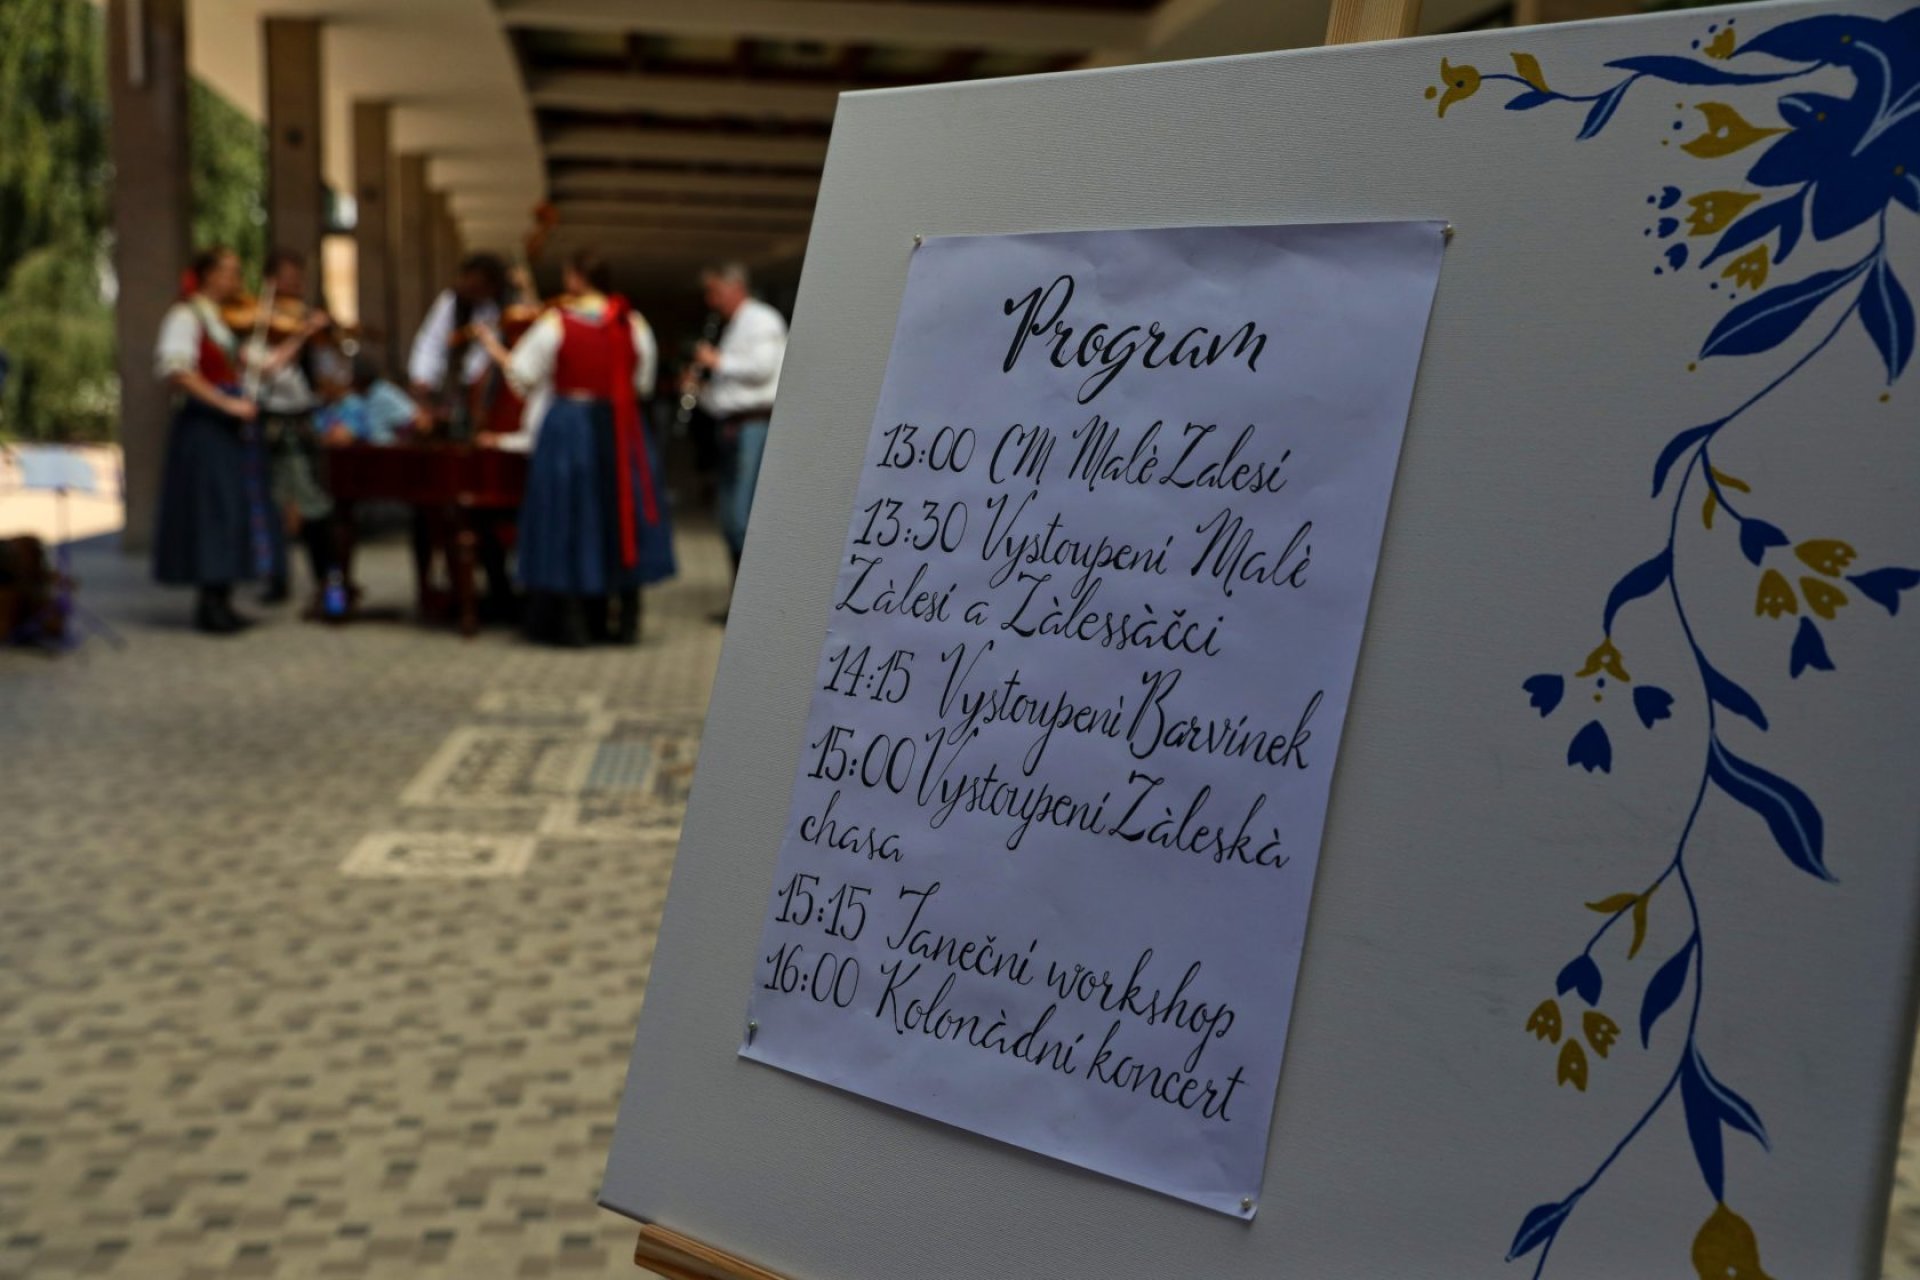 Program
13:00 CM Malè Zalesí
13:30 Vystoupení Malè
Zàlesí a Zàlessàčci
14:15 Vystoupenì Barvínek
15:00 Vystoupení Zàleskà
chasa
15:15 Taneční workshop
16:00 Kolonàdní koncert